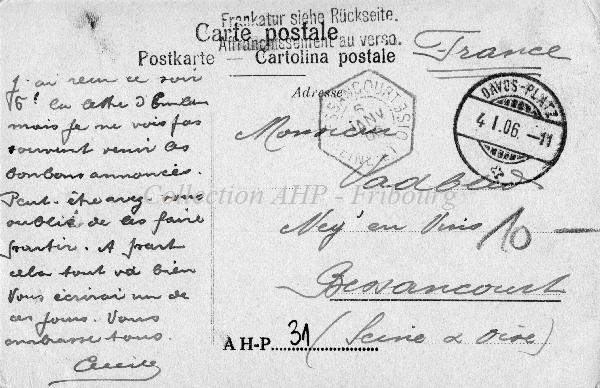 Frankatur siehe Rückseite.
Carte postale
Affranchissement au verso.
Postkarte — Cartolina postale
France
Adresse
BESSANCOURT S-OISE
6
JANV
DAVOS-PLATZ
4 I.06.-11
J'ai reçu ce soir
la lettre d'
mais je ne vois pas
souvent venir les
bonbons annoncés.
Peut-être avez-vous
oublié de les faire
partir. A part
cela tout va bien
Vous écrirai un de
ces jours. Vous
embrasse tous.
Cecile
Monsieur
en
10
Bessancourt
(Seine & Oise)
Collection AHP - Fribourg
AH-P 31